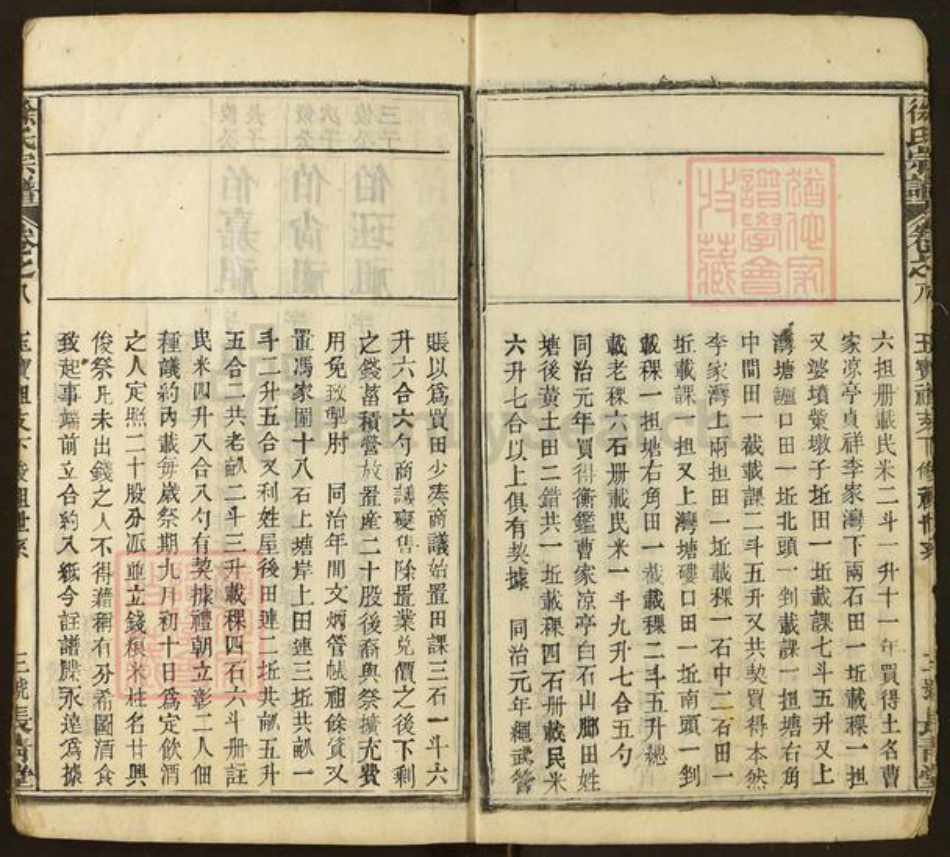 徐氏宗譜
卷之八
六担册載民米二斗一升十一年買得土名曹
家凉亭貞祥李家灣下兩石田一坵載稞一担
又婆墳㘵墩子坵田一坵載課七斗五升又上
灣塘䃮口田一坵北頭一剅載課一担塘右角
中間田一截載課二斗五升又共契買得本然
李家灣上兩担田一坵載稞一石中二石田一
坵載課一担又上灣塘䃮口田一坵南頭一剅
載稞一担塘右角田一截載稞二斗五升總
載老稞六石册載民米一斗九升七合五勺
同治元年買得衡鑑曹家凉亭白石山脚田姓
塘後黄土田二錯共一坵載稞四石册載民米
六升七合以上俱有契據 同治元年繩武管
賬以爲買田少凑商議始置田課三石一斗六
升六合六勺商議變售除置業兑價之後下剩
之錢蓄積營放置産二十股後裔與祭擴充費
用免致掣肘 同治年間文炳管帳祖餘資又
置馮家圍十八石上塘岸上田連三坵共畝一
斗二升五合又利姓屋後田連二坵共畝五升
五合二共老畝二斗三升載稞四石六斗册註
民米四升八合八勺有契據禮朝立彰二人佃
種議約内載每歲祭期九月初十日爲定飲酒
之人定照二十股分派並立錢糧米柱名甘興
俊祭凡未出錢之人不得藉稱有分希圖酒食
致起事端前立合約入紙今註譜牒永遠爲據
徐氏宗譜
卷之八
玉寶祖支下俊祖世系
三號長青堂